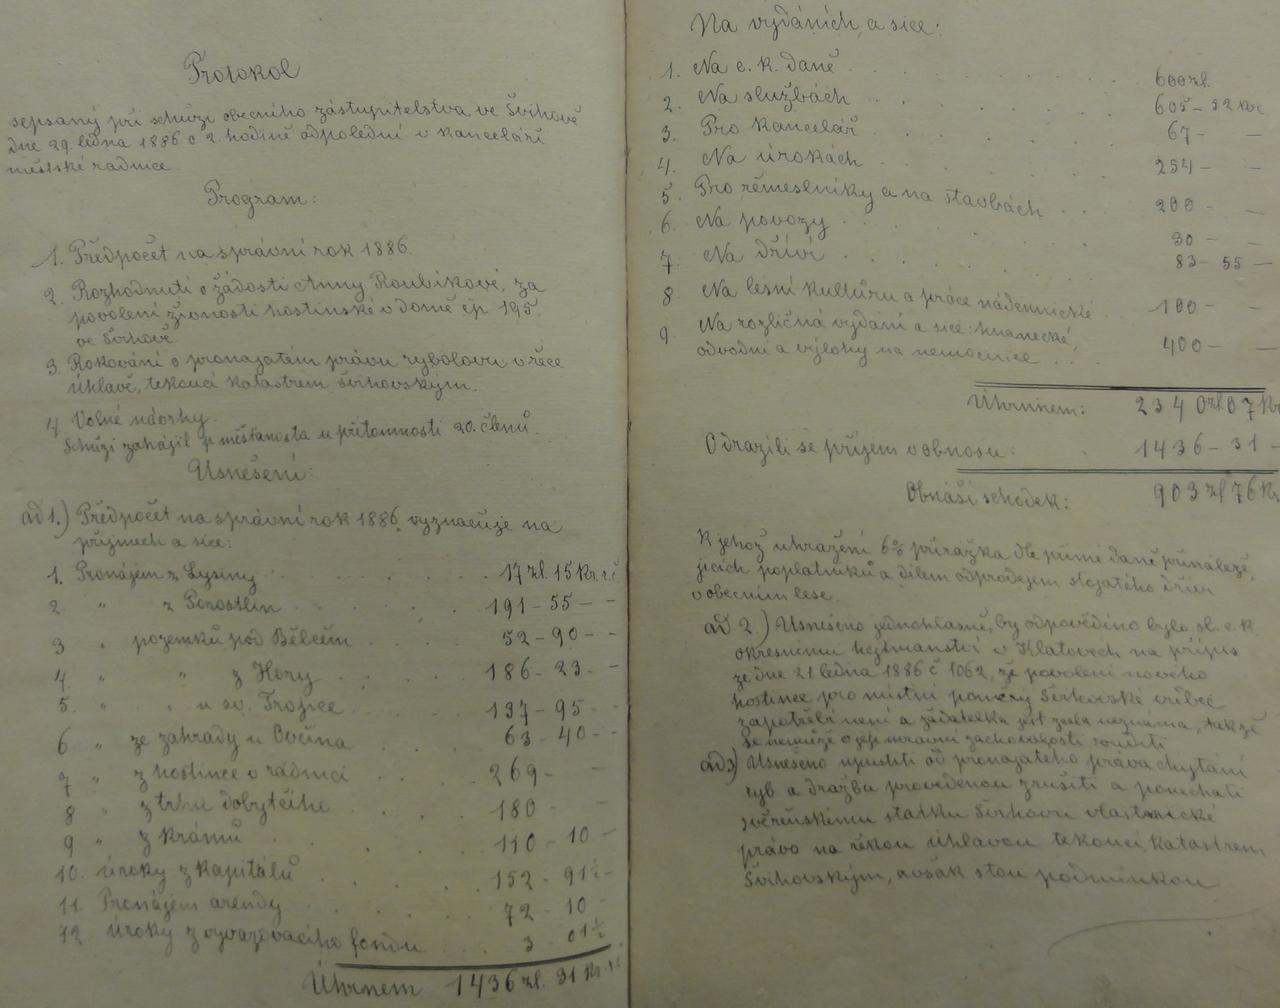 Protokol
sepsaný při schůzi obecního zástupitelstva ve Švihově
dne 29. ledna 1886 o 2. hodině odpolední v kanceláři
městské radnice
Program:
1. Předpočet na správní rok 1886.
2. Rozhodnutí o žádosti Anny Roubíkové, za
povolení živnosti hostinské v domě čp. 195.
ve Švihově.
3. Rokování o pronajatém právu rybolovu v řece
Úhlavě, tekoucí katastrem Švihovským.
4 Volné návrhy.
Schůzi zahájil p. měšťanosta u přítomnosti 20. členů.
Usnešení:
ad 1.) Předpočet na správní rok 1886 vyznačuje na
příjmech a sice:
1. Pronájem z Lysiny . . . 17 zl. 15 Kr. r.č
2. " z Porostlin . . . 191 - 55 - -
3 " pozemků pod Bělčem . . . 52 - 90 - -
4. " " z Hory . . . 186 - 23 - -
5. " " u sv. Trojice . . . 137 - 95 - -
6 " ze zahrady u Cvčína . . . 63 - 40 - -
7 " z hostince v radnici . . . 269 - -
8 " z trhu dobytčího . . . 180 - -
9 " z krámů . . . 110 - 10 - -
10. úroky z kapitálů . . . 152 - 91½ -
11. Pronájem arendy . . . 72 - 10 -
12. úroky z vyvazovacího fondu . . . 3 - 01½
Úhrnem 1436 zl. 31 Kr. r.č
Na vydáních, a sice:
1. Na c. k. daně . . . 600 zl.
2. Na službách . . . 605 - 52 kr
3. Pro kancelář . . . 67 - -
4. Na úrokách . . . 254 - -
5. Pro řemeslníky a na stavbách . . . 200 - -
6. Na povozy . . . 30 - -
7. Na dříví . . . 83 - 55 -
8 Na lesní kultůru a práce nádennické . 100 - -
9. Na rozličná vydání a sice: hnanecké,
odvodní a výlohy na nemocnice . . . 400 - -
Úhrnem: 2340 zl 07 Kr
Odrazili se příjem v obnosu: 1436 - 31 -
Obnáší schodek: 903 zl 76 Kr
K jehož uhražení 6% přirážka dle přímé daně přináleže-
jících poplatníků a dílem odprodejem stojatého dříví
v obecním lese.
ad 2.) Usnešeno jednohlasně, by odpověděno bylo sl. c. k.
okresnímu hejtmanství v Klatovech na přípis
ze dne 21 ledna 1886 č 1062, že povolení nového
hostince pro místní poměry Švihovské vůbec
zapotřebí není a žadatelka jest zcela neznáma, takže
se nemůže o její mravní zachovalosti souditi
ad 3) Usnešeno upustiti od pronajatého práva chytání
ryb a dražbu provedenou zrušiti a ponechati
svěřenskému statku Švihovu vlastnické
právo na řekou Úhlavou tekoucí katastrem
Švihovským, avšak s tou podmínkou